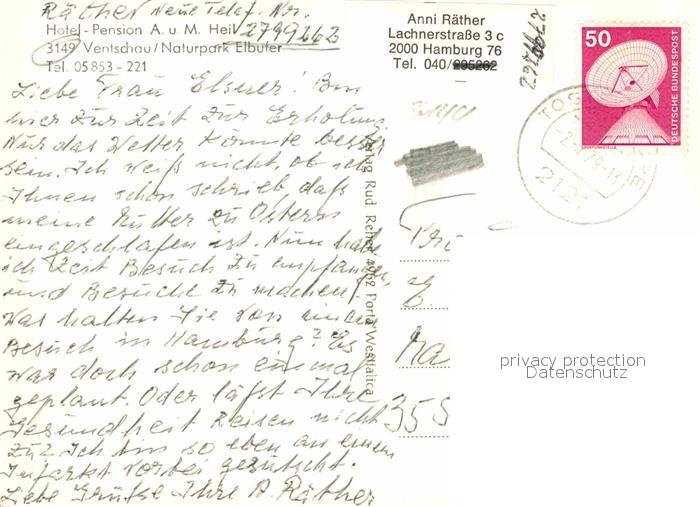 Räther Neue Telef. Nr.
Hotel - Pension A. u. M. Heil 2799262
3149 Ventschau / Naturpark Elbufer
Tel. 05853 - 221
Liebe Frau Elsner! Bin
hier zur Zeit zur Erholung
Nur das Wetter könnte besser
sein. Ich weiß nicht, ob ich
Ihnen schon schrieb, daß
meine Mutter zu Ostern
eingeschlafen ist. Nun habe
ich Zeit Besuch zu empfangen
und Besuche zu machen!
Was halten Sie von einem
Besuch in Hamburg? Es
war doch schon einmal
geplant. Oder läßt Ihre
Gesundheit Reisen nicht
zu? Ich bin so eben an einem
Infarkt vorbei gerutscht.
Liebe Grüße Ihre A. Räther
Verlag Rud. Reher 4952 Porta Westfalica
Anni Räther
Lachnerstraße 3 c
2000 Hamburg 76
Tel. 040/295262
2799262
50
DEUTSCHE BUNDESPOST
ERDFUNKSTELLE
2121
355
privacy protection
Datenschutz